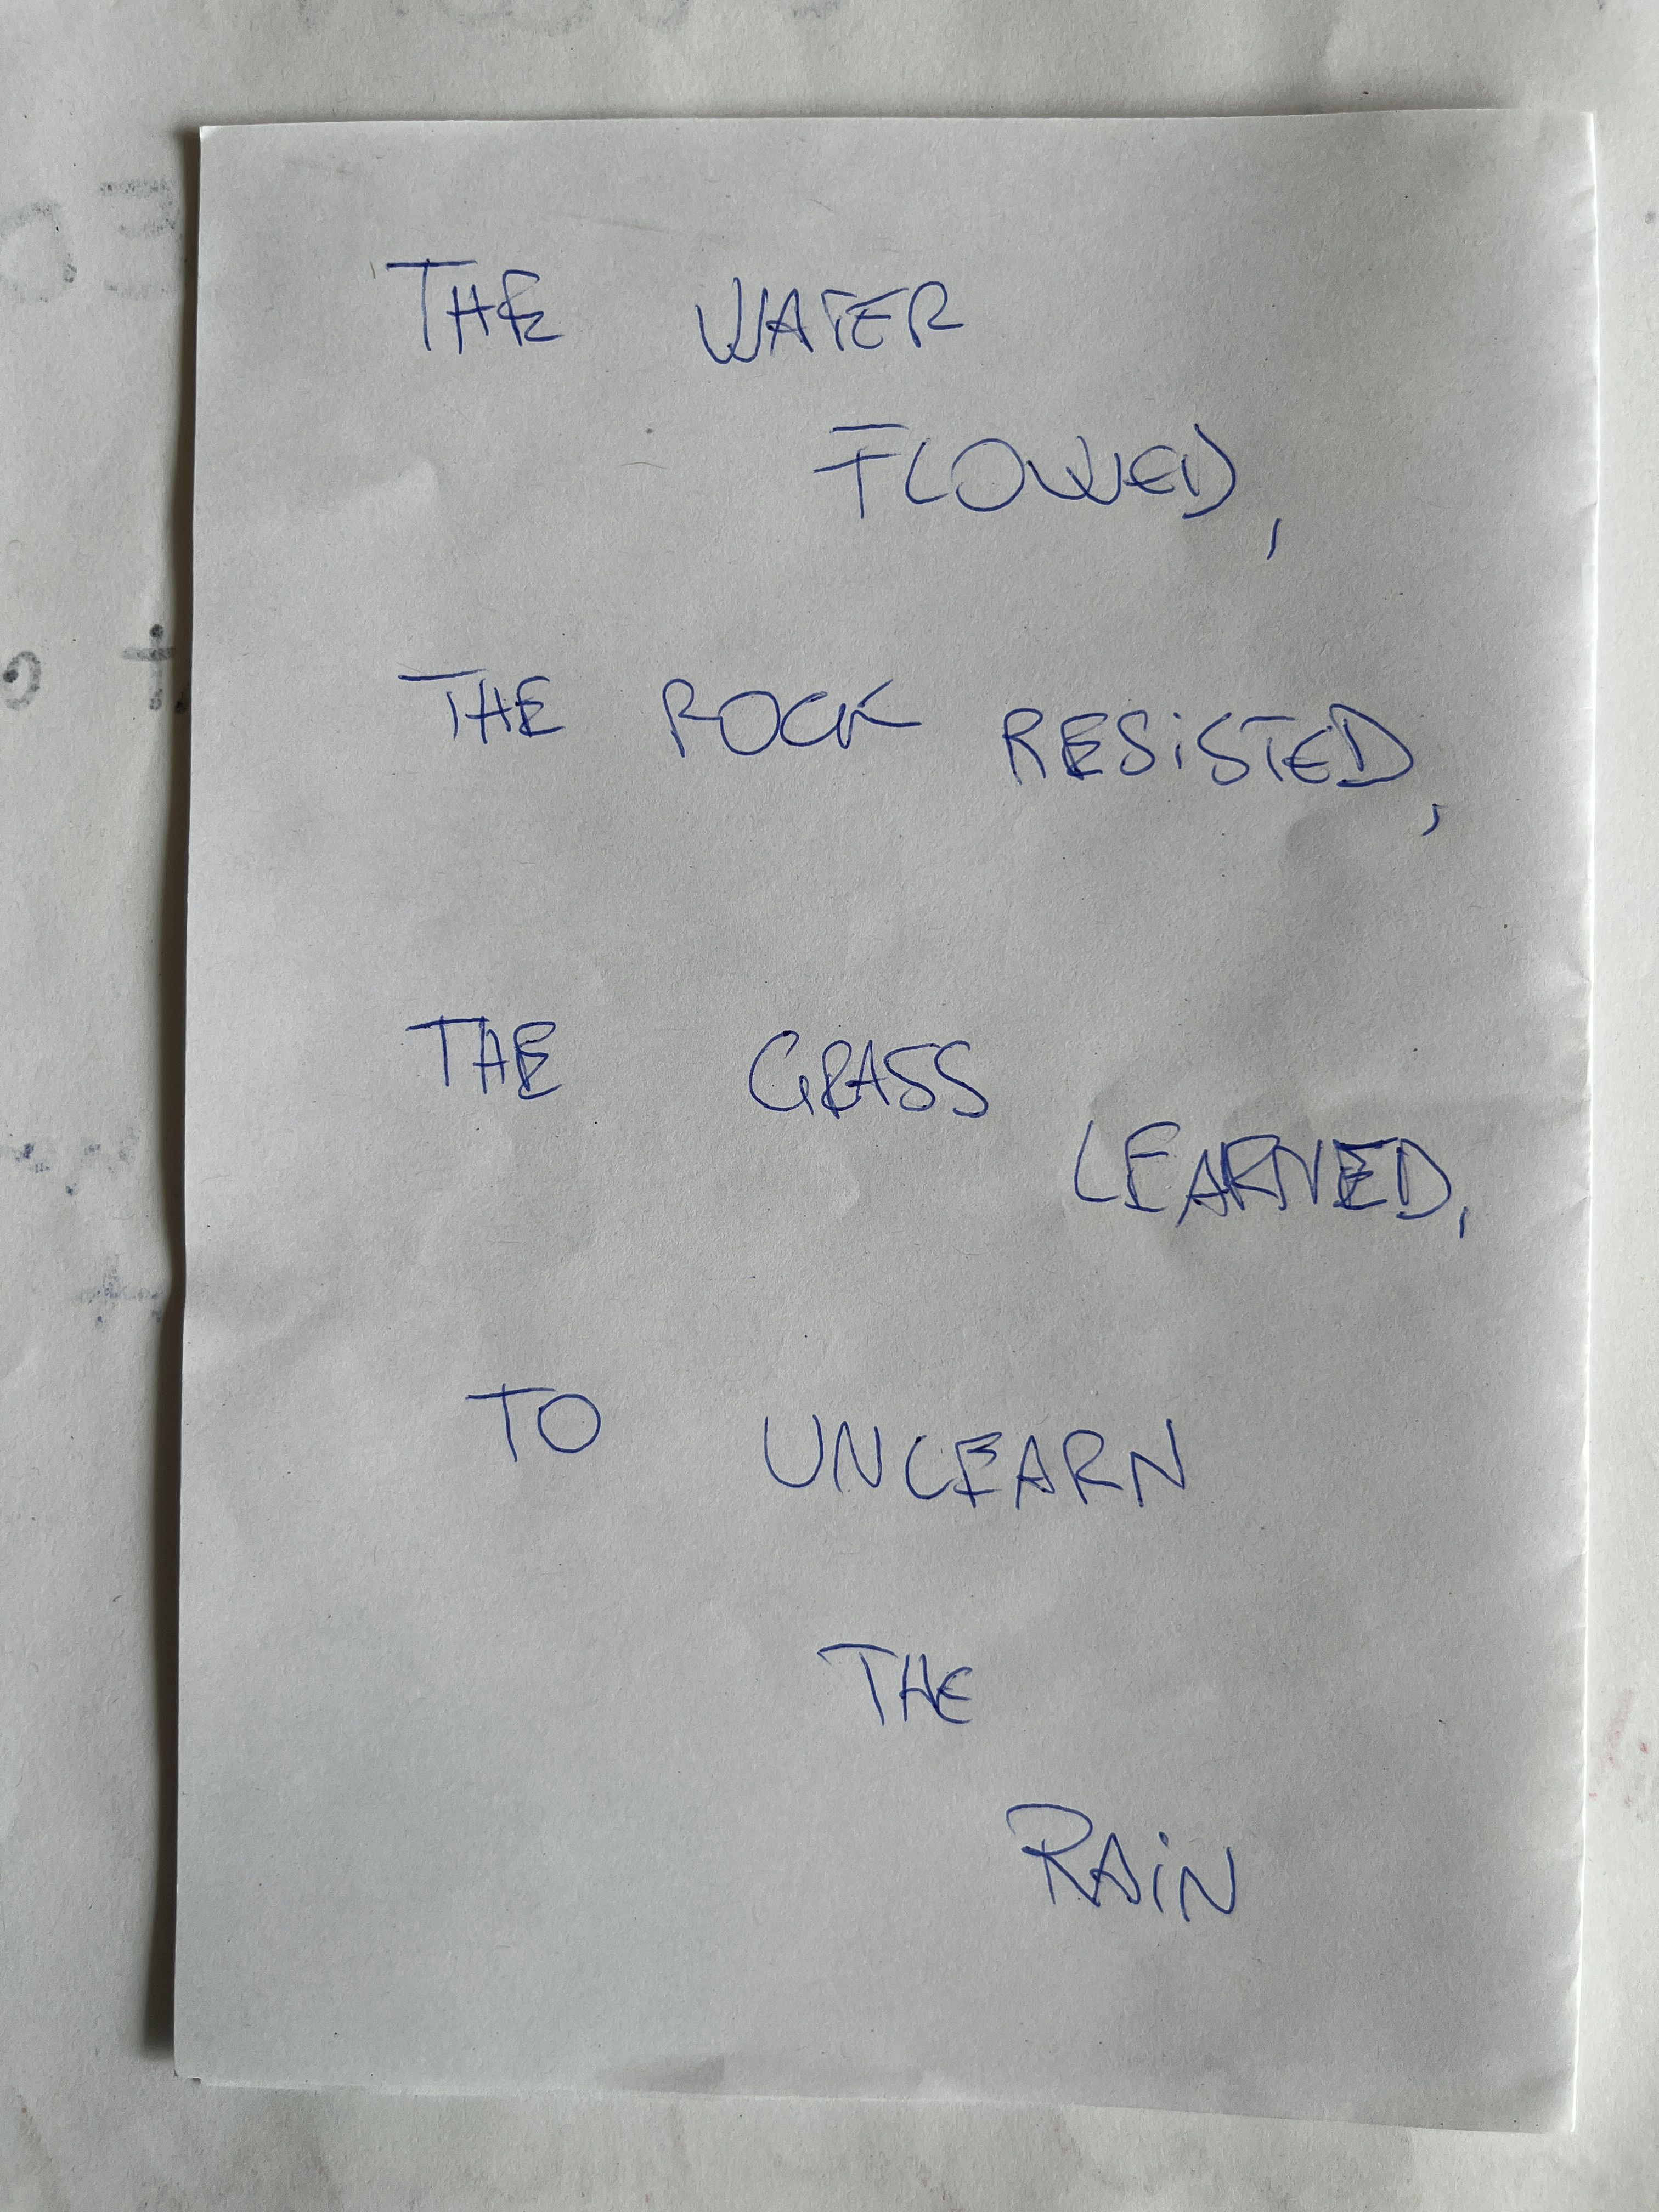 THE WATER
FLOWED,
THE ROCK RESISTED,
THE GRASS
LEARNED,
TO UNLEARN
THE
RAIN